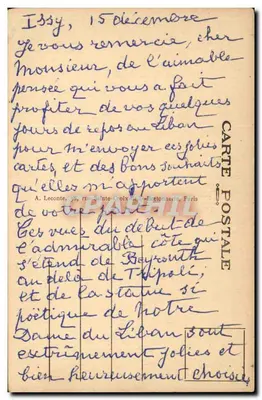 Issy, 15 décembre
Je vous remercie, cher
Monsieur, de l'aimable
pensée qui vous a fait
profiter de vos quelques
jours de repos au Liban
pour m'envoyer ces jolies
cartes, et des bons souhaits
qu'elles m'apportent
A. Leconte, Paris
de votre part.
Ces vues du début de
l'admirable côte qui
s'étend de Beyrouth
au delà de Tripoli,
et de la statue si
poëtique de Notre
Dame du Liban sont
extrêmement jolies et
bien heureusement choisies
CARTE POSTALE